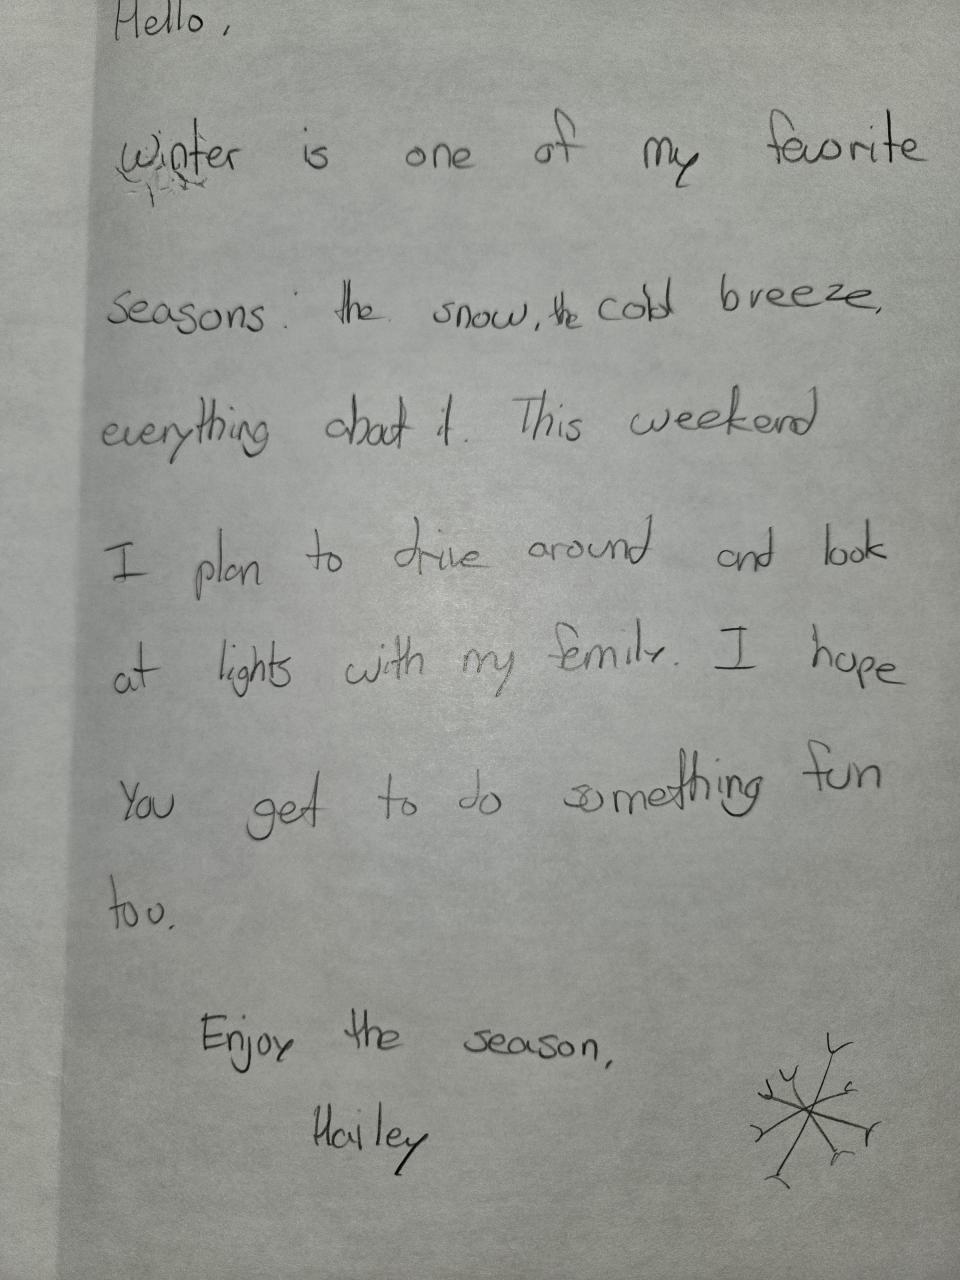 Hello,
Winter is one of my favorite
seasons: the snow, the cold breeze,
everything about it. This weekend
I plan to drive around and look
at lights with my family. I hope
You get to do something fun
too.
Enjoy the season,
Hailey